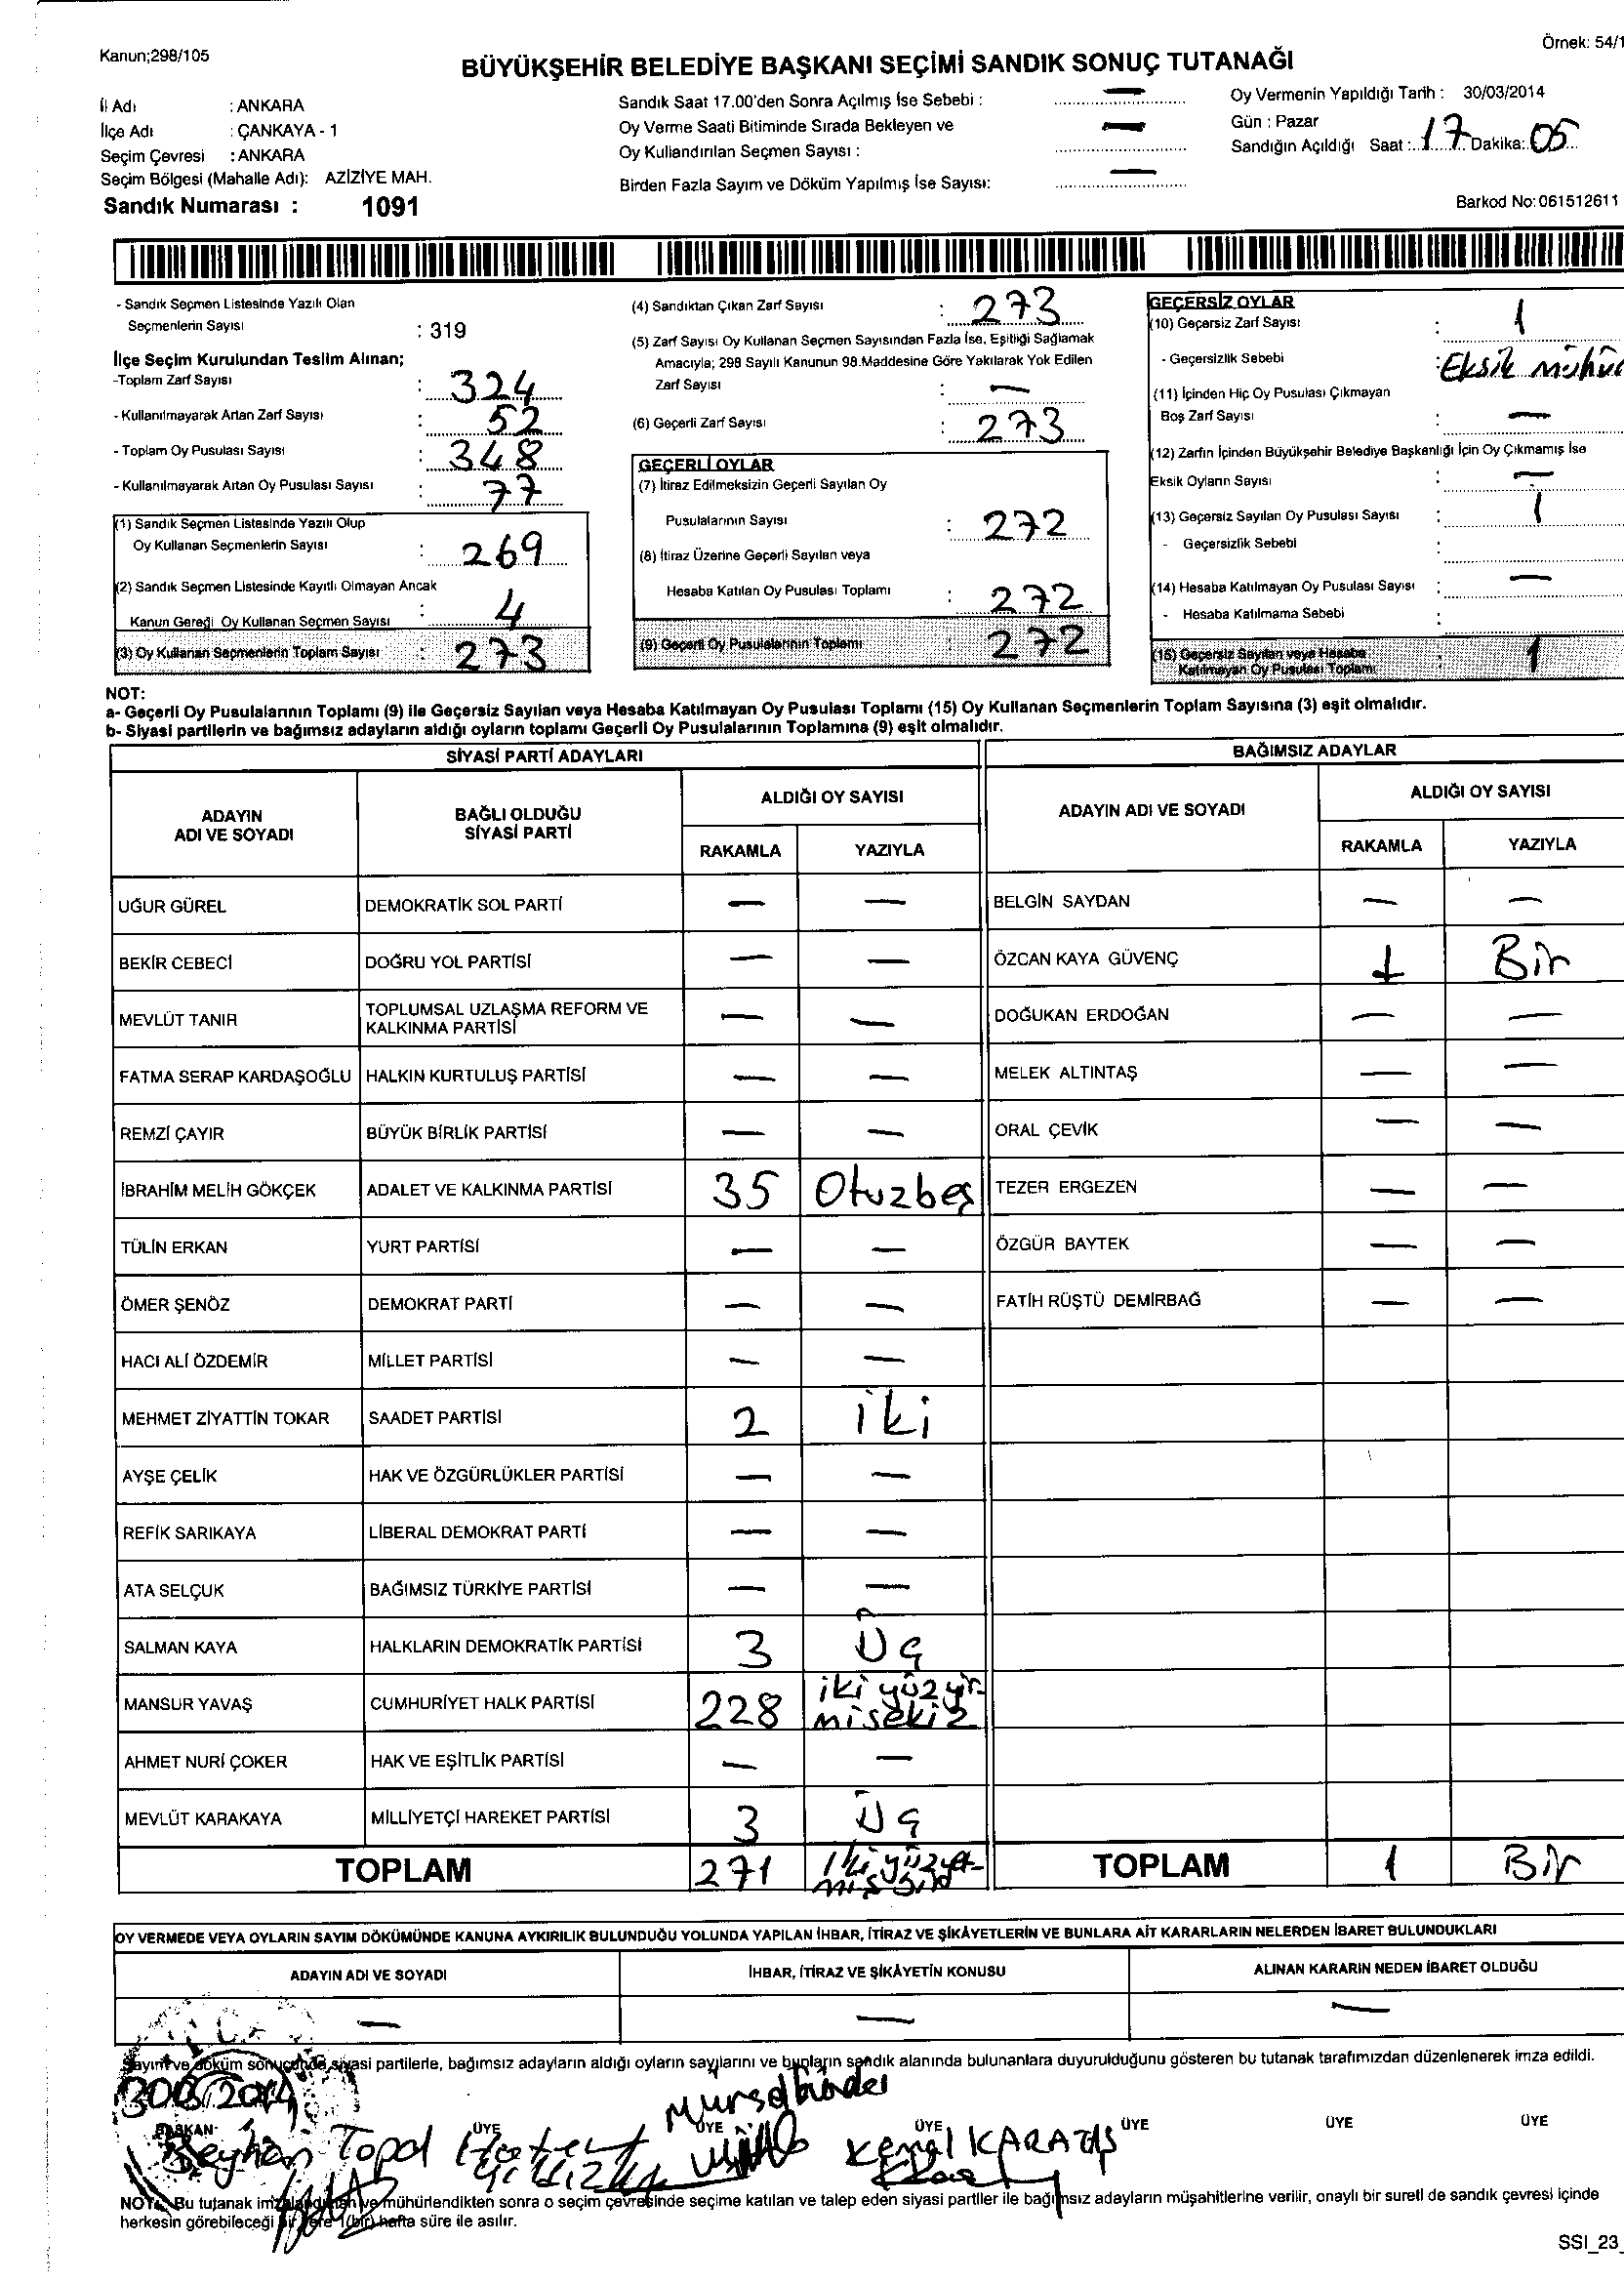 Kanun;298/105
Örnek: 54/1
BÜYÜKŞEHİR BELEDİYE BAŞKANI SEÇİMİ SANDIK SONUÇ TUTANAĞI
İl Adı : ANKARA
İlçe Adı : ÇANKAYA - 1
Seçim Çevresi : ANKARA
Seçim Bölgesi (Mahalle Adı): AZİZİYE MAH.
Sandık Numarası : 1091
Sandık Saat 17.00'den Sonra Açılmış İse Sebebi : —
Oy Verme Saati Bitiminde Sırada Bekleyen ve
Oy Kullandırılan Seçmen Sayısı : —
Birden Fazla Sayım ve Döküm Yapılmış İse Sayısı: —
Oy Vermenin Yapıldığı Tarih : 30/03/2014
Gün : Pazar
Sandığın Açıldığı Saat : 17 Dakika: 05
Barkod No: 061512611
- Sandık Seçmen Listesinde Yazılı Olan
Seçmenlerin Sayısı : 319
İlçe Seçim Kurulundan Teslim Alınan;
-Toplam Zarf Sayısı : 324
- Kullanılmayarak Artan Zarf Sayısı : 52
- Toplam Oy Pusulası Sayısı : 348
- Kullanılmayarak Artan Oy Pusulası Sayısı : 77
(1) Sandık Seçmen Listesinde Yazılı Olup
Oy Kullanan Seçmenlerin Sayısı : 269
(2) Sandık Seçmen Listesinde Kayıtlı Olmayan Ancak
Kanun Gereği Oy Kullanan Seçmen Sayısı : 4
(3) Oy Kullanan Seçmenlerin Toplam Sayısı : 273
(4) Sandıktan Çıkan Zarf Sayısı : 273
(5) Zarf Sayısı Oy Kullanan Seçmen Sayısından Fazla İse, Eşitliği Sağlamak
Amacıyla; 298 Sayılı Kanunun 98.Maddesine Göre Yakılarak Yok Edilen
Zarf Sayısı : —
(6) Geçerli Zarf Sayısı : 273
GEÇERLİ OYLAR
(7) İtiraz Edilmeksizin Geçerli Sayılan Oy
Pusulalarının Sayısı : 272
(8) İtiraz Üzerine Geçerli Sayılan veya
Hesaba Katılan Oy Pusulası Toplamı : 272
(9) Geçerli Oy Pusulalarının Toplamı : 272
GEÇERSİZ OYLAR
(10) Geçersiz Zarf Sayısı : 1
- Geçersizlik Sebebi : Eksik mühür
(11) İçinden Hiç Oy Pusulası Çıkmayan
Boş Zarf Sayısı : —
(12) Zarfın İçinden Büyükşehir Belediye Başkanlığı İçin Oy Çıkmamış İse
Eksik Oyların Sayısı : —
(13) Geçersiz Sayılan Oy Pusulası Sayısı : 1
- Geçersizlik Sebebi :
(14) Hesaba Katılmayan Oy Pusulası Sayısı : —
- Hesaba Katılmama Sebebi :
(15) Geçersiz Sayılan veya Hesaba
Katılmayan Oy Pusulası Toplamı : 1
NOT:
a- Geçerli Oy Pusulalarının Toplamı (9) ile Geçersiz Sayılan veya Hesaba Katılmayan Oy Pusulası Toplamı (15) Oy Kullanan Seçmenlerin Toplam Sayısına (3) eşit olmalıdır.
b- Siyasi partilerin ve bağımsız adayların aldığı oyların toplamı Geçerli Oy Pusulalarının Toplamına (9) eşit olmalıdır.
SİYASİ PARTİ ADAYLARI
ADAYIN ADI VE SOYADI
BAĞLI OLDUĞU SİYASİ PARTİ
ALDIĞI OY SAYISI
RAKAMLA YAZIYLA
UĞUR GÜREL DEMOKRATİK SOL PARTİ — —
BEKİR CEBECİ DOĞRU YOL PARTİSİ — —
MEVLÜT TANIR TOPLUMSAL UZLAŞMA REFORM VE KALKINMA PARTİSİ — —
FATMA SERAP KARDAŞOĞLU HALKIN KURTULUŞ PARTİSİ — —
REMZİ ÇAYIR BÜYÜK BİRLİK PARTİSİ — —
İBRAHİM MELİH GÖKÇEK ADALET VE KALKINMA PARTİSİ 35 Otuzbeş
TÜLİN ERKAN YURT PARTİSİ — —
ÖMER ŞENÖZ DEMOKRAT PARTİ — —
HACI ALİ ÖZDEMİR MİLLET PARTİSİ — —
MEHMET ZİYATTİN TOKAR SAADET PARTİSİ 2 iki
AYŞE ÇELİK HAK VE ÖZGÜRLÜKLER PARTİSİ — —
REFİK SARIKAYA LİBERAL DEMOKRAT PARTİ — —
ATA SELÇUK BAĞIMSIZ TÜRKİYE PARTİSİ — —
SALMAN KAYA HALKLARIN DEMOKRATİK PARTİSİ 3 Üç
MANSUR YAVAŞ CUMHURİYET HALK PARTİSİ 228 iki yüz yir-misekiz
AHMET NURİ ÇOKER HAK VE EŞİTLİK PARTİSİ — —
MEVLÜT KARAKAYA MİLLİYETÇİ HAREKET PARTİSİ 3 Üç
TOPLAM 271 İki yüz yet-miş bir
BAĞIMSIZ ADAYLAR
ADAYIN ADI VE SOYADI
ALDIĞI OY SAYISI
RAKAMLA YAZIYLA
BELGİN SAYDAN — —
ÖZCAN KAYA GÜVENÇ 1 Bir
DOĞUKAN ERDOĞAN — —
MELEK ALTINTAŞ — —
ORAL ÇEVİK — —
TEZER ERGEZEN — —
ÖZGÜR BAYTEK — —
FATİH RÜŞTÜ DEMİRBAĞ — —
TOPLAM 1 Bir
OY VERMEDE VEYA OYLARIN SAYIM DÖKÜMÜNDE KANUNA AYKIRILIK BULUNDUĞU YOLUNDA YAPILAN İHBAR, İTİRAZ VE ŞİKÂYETLERİN VE BUNLARA AİT KARARLARIN NELERDEN İBARET BULUNDUKLARI
ADAYIN ADI VE SOYADI İHBAR, İTİRAZ VE ŞİKÂYETİN KONUSU ALINAN KARARIN NEDEN İBARET OLDUĞU
— — —
Sayım ve döküm sonucunda siyasi partilerle, bağımsız adayların aldığı oyların sayılarını ve bunların sandık alanında bulunanlara duyurulduğunu gösteren bu tutanak tarafımızdan düzenlenerek imza edildi.
BAŞKAN ÜYE ÜYE ÜYE ÜYE ÜYE ÜYE
Topal Kemal KARATAŞ
NOT: Bu tutanak imzalandıktan ve mühürlendikten sonra o seçim çevresinde seçime katılan ve talep eden siyasi partiler ile bağımsız adayların müşahitlerine verilir, onaylı bir sureti de sandık çevresi içinde
herkesin görebileceği bir yere 1(bir) hafta süre ile asılır.
SSI_23_